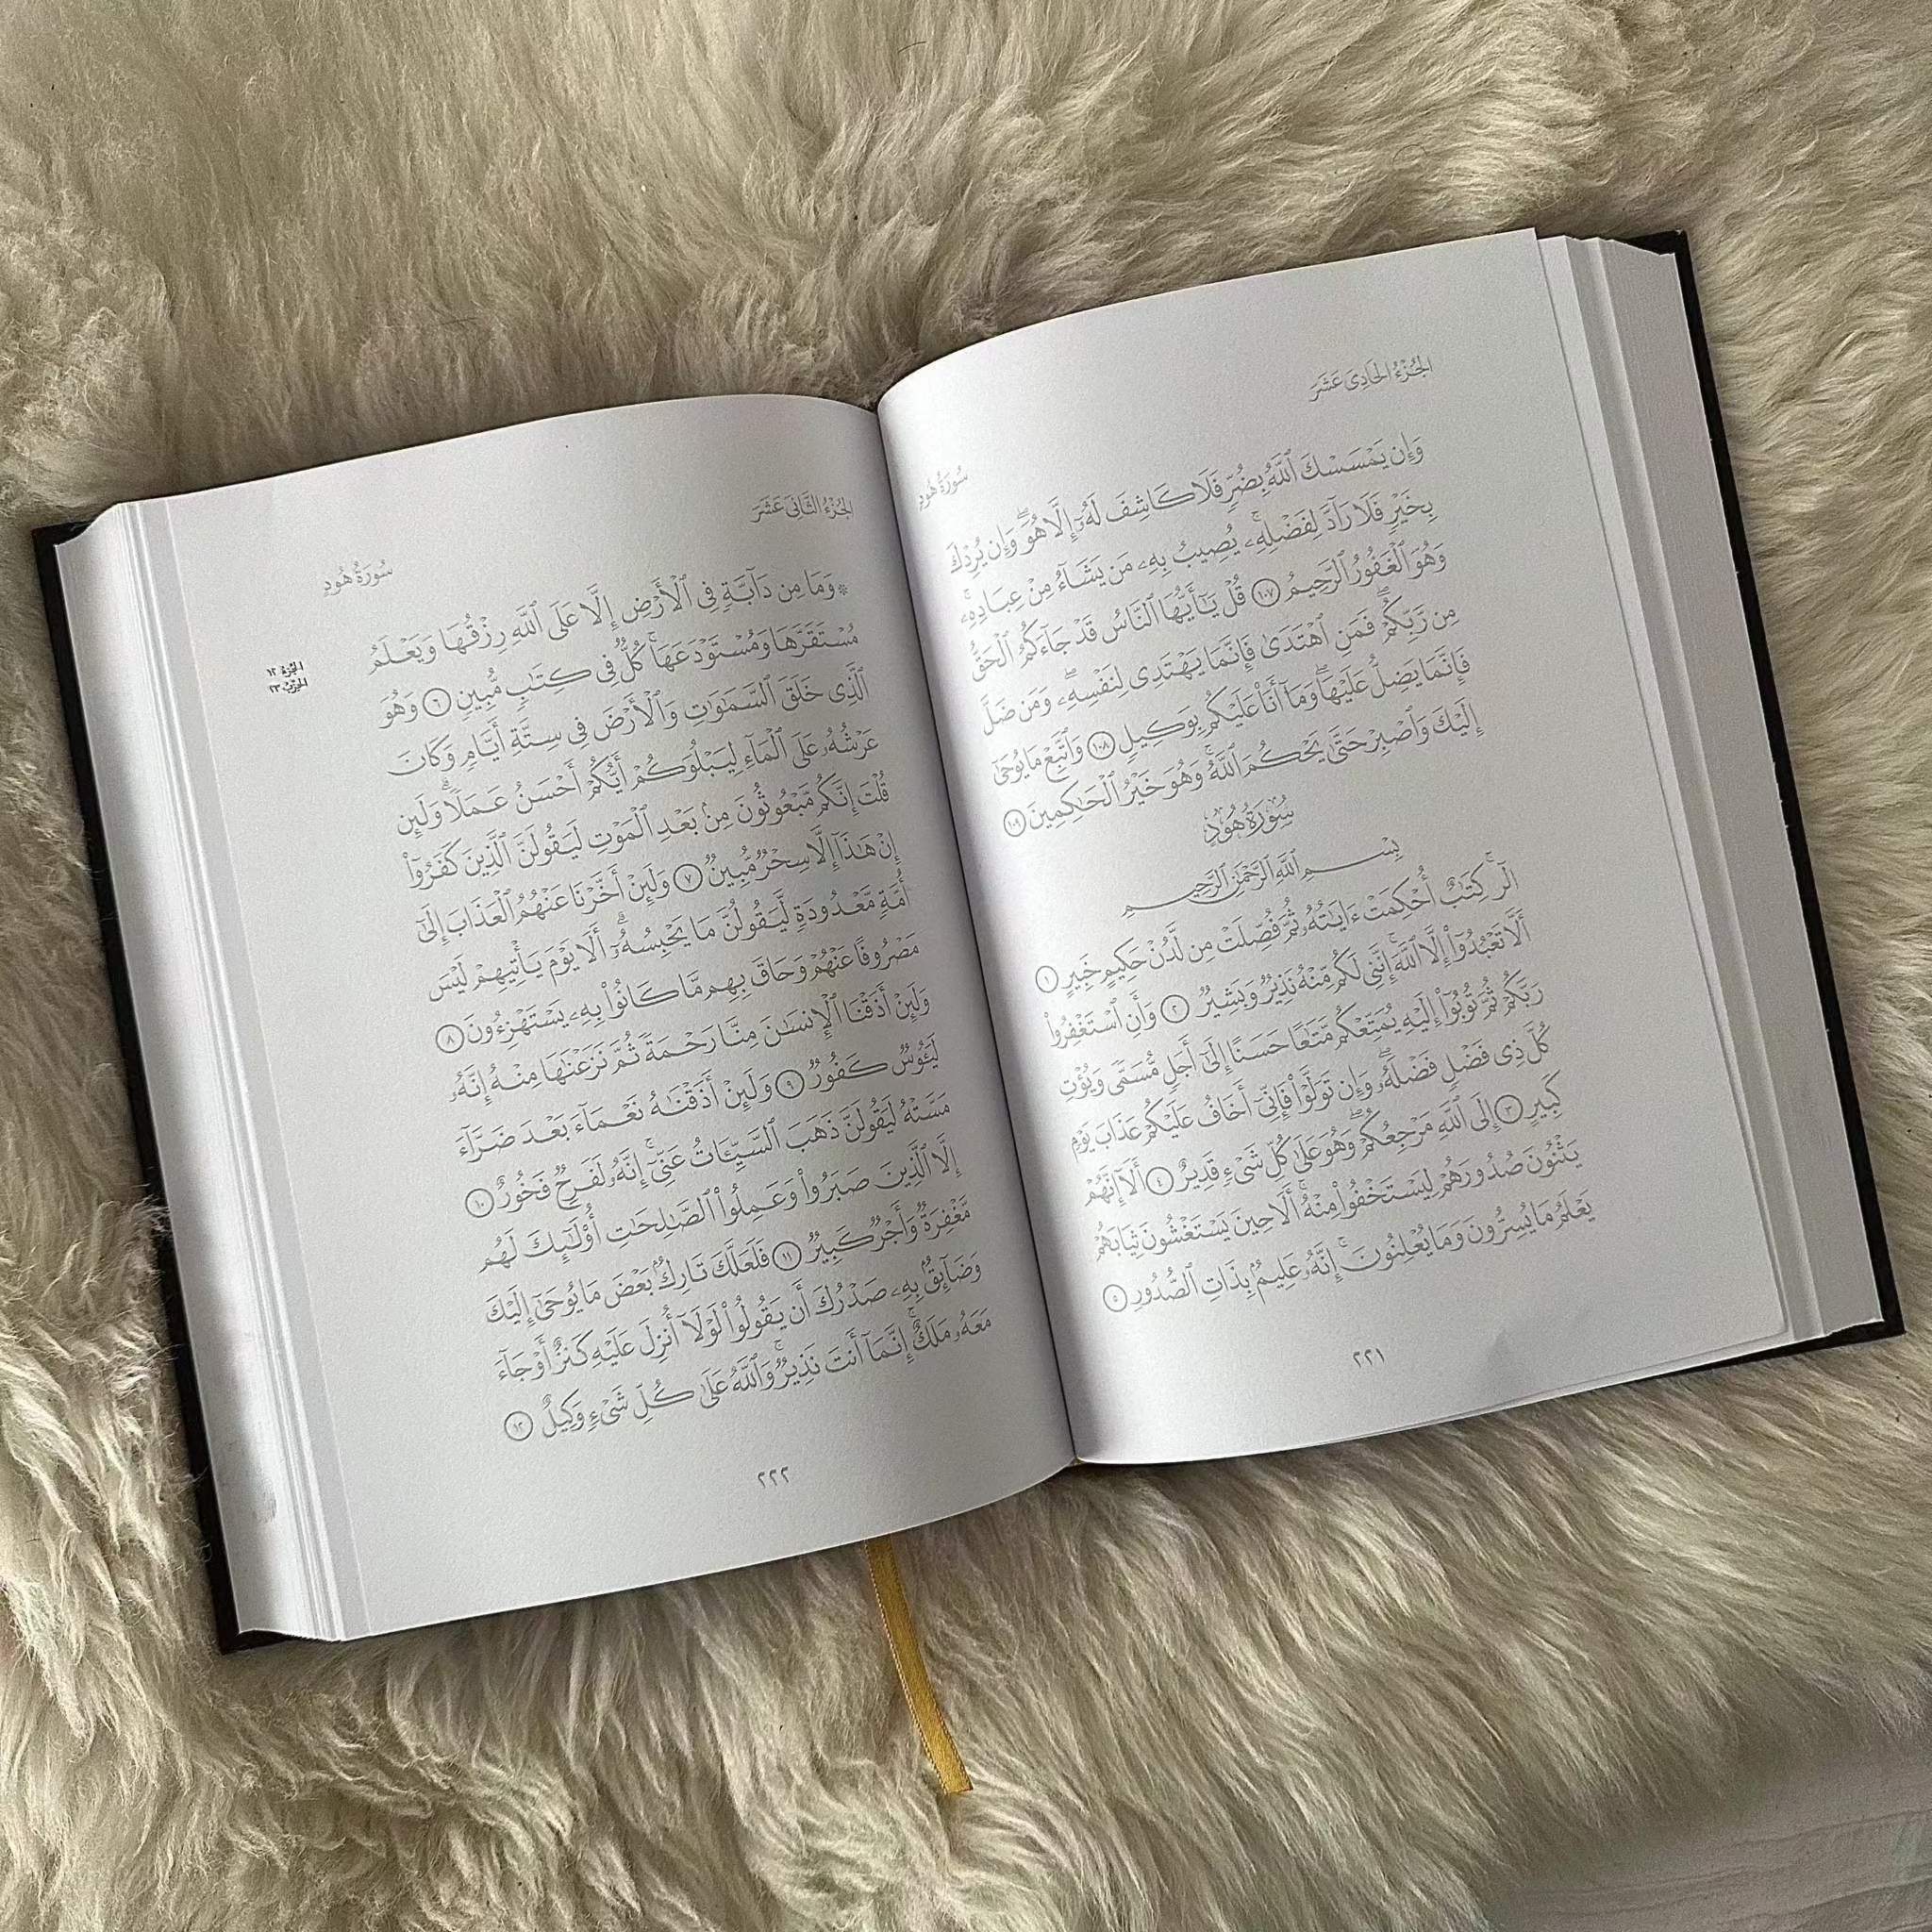 الجُزْءُ الحَادِيَ عَشَرَ
سُورَةُ هُودٍ
وَإِن يَمْسَسْكَ ٱللَّهُ بِضُرٍّ فَلَا كَاشِفَ لَهُۥٓ إِلَّا هُوَۖ وَإِن يُرِدْكَ
بِخَيْرٍ فَلَا رَآدَّ لِفَضْلِهِۦۚ يُصِيبُ بِهِۦ مَن يَشَآءُ مِنْ عِبَادِهِۦۚ
وَهُوَ ٱلْغَفُورُ ٱلرَّحِيمُ ١٠٧ قُلْ يَٰٓأَيُّهَا ٱلنَّاسُ قَدْ جَآءَكُمُ ٱلْحَقُّ
مِن رَّبِّكُمْۖ فَمَنِ ٱهْتَدَىٰ فَإِنَّمَا يَهْتَدِى لِنَفْسِهِۦۖ وَمَن ضَلَّ
فَإِنَّمَا يَضِلُّ عَلَيْهَاۖ وَمَآ أَنَا۠ عَلَيْكُم بِوَكِيلٍ ١٠٨ وَٱتَّبِعْ مَا يُوحَىٰٓ
إِلَيْكَ وَٱصْبِرْ حَتَّىٰ يَحْكُمَ ٱللَّهُۚ وَهُوَ خَيْرُ ٱلْحَٰكِمِينَ ١٠٩
سُورَةُ هُودٍ
بِسْمِ ٱللَّهِ ٱلرَّحْمَٰنِ ٱلرَّحِيمِ
الٓرۚ كِتَٰبٌ أُحْكِمَتْ ءَايَٰتُهُۥ ثُمَّ فُصِّلَتْ مِن لَّدُنْ حَكِيمٍ خَبِيرٍ ١
أَلَّا تَعْبُدُوٓا۟ إِلَّا ٱللَّهَۚ إِنَّنِى لَكُم مِّنْهُ نَذِيرٌ وَبَشِيرٌ ٢ وَأَنِ ٱسْتَغْفِرُوا۟
رَبَّكُمْ ثُمَّ تُوبُوٓا۟ إِلَيْهِ يُمَتِّعْكُم مَّتَٰعًا حَسَنًا إِلَىٰٓ أَجَلٍ مُّسَمًّى وَيُؤْتِ
كُلَّ ذِى فَضْلٍ فَضْلَهُۥۖ وَإِن تَوَلَّوْا۟ فَإِنِّىٓ أَخَافُ عَلَيْكُمْ عَذَابَ يَوْمٍ
كَبِيرٍ ٣ إِلَى ٱللَّهِ مَرْجِعُكُمْۖ وَهُوَ عَلَىٰ كُلِّ شَىْءٍ قَدِيرٌ ٤ أَلَآ إِنَّهُمْ
يَثْنُونَ صُدُورَهُمْ لِيَسْتَخْفُوا۟ مِنْهُۚ أَلَا حِينَ يَسْتَغْشُونَ ثِيَابَهُمْ
يَعْلَمُ مَا يُسِرُّونَ وَمَا يُعْلِنُونَۚ إِنَّهُۥ عَلِيمٌۢ بِذَاتِ ٱلصُّدُورِ ٥
٢٢١
الجُزْءُ الثَّانِيَ عَشَرَ
سُورَةُ هُودٍ
۞ وَمَا مِن دَآبَّةٍ فِى ٱلْأَرْضِ إِلَّا عَلَى ٱللَّهِ رِزْقُهَا وَيَعْلَمُ
مُسْتَقَرَّهَا وَمُسْتَوْدَعَهَاۚ كُلٌّ فِى كِتَٰبٍ مُّبِينٍ ٦ وَهُوَ
ٱلَّذِى خَلَقَ ٱلسَّمَٰوَٰتِ وَٱلْأَرْضَ فِى سِتَّةِ أَيَّامٍ وَكَانَ
عَرْشُهُۥ عَلَى ٱلْمَآءِ لِيَبْلُوَكُمْ أَيُّكُمْ أَحْسَنُ عَمَلًاۗ وَلَئِن
قُلْتَ إِنَّكُم مَّبْعُوثُونَ مِنۢ بَعْدِ ٱلْمَوْتِ لَيَقُولَنَّ ٱلَّذِينَ كَفَرُوٓا۟
إِنْ هَٰذَآ إِلَّا سِحْرٌ مُّبِينٌ ٧ وَلَئِنْ أَخَّرْنَا عَنْهُمُ ٱلْعَذَابَ إِلَىٰٓ
أُمَّةٍ مَّعْدُودَةٍ لَّيَقُولُنَّ مَا يَحْبِسُهُۥٓۗ أَلَا يَوْمَ يَأْتِيهِمْ لَيْسَ
مَصْرُوفًا عَنْهُمْ وَحَاقَ بِهِم مَّا كَانُوا۟ بِهِۦ يَسْتَهْزِءُونَ ٨
وَلَئِنْ أَذَقْنَا ٱلْإِنسَٰنَ مِنَّا رَحْمَةً ثُمَّ نَزَعْنَٰهَا مِنْهُ إِنَّهُۥ
لَيَـُٔوسٌ كَفُورٌ ٩ وَلَئِنْ أَذَقْنَٰهُ نَعْمَآءَ بَعْدَ ضَرَّآءَ
مَسَّتْهُ لَيَقُولَنَّ ذَهَبَ ٱلسَّيِّـَٔاتُ عَنِّىٓۚ إِنَّهُۥ لَفَرِحٌ فَخُورٌ ١٠
إِلَّا ٱلَّذِينَ صَبَرُوا۟ وَعَمِلُوا۟ ٱلصَّٰلِحَٰتِ أُو۟لَٰٓئِكَ لَهُم
مَّغْفِرَةٌ وَأَجْرٌ كَبِيرٌ ١١ فَلَعَلَّكَ تَارِكٌۢ بَعْضَ مَا يُوحَىٰٓ إِلَيْكَ
وَضَآئِقٌۢ بِهِۦ صَدْرُكَ أَن يَقُولُوا۟ لَوْلَآ أُنزِلَ عَلَيْهِ كَنزٌ أَوْ جَآءَ
مَعَهُۥ مَلَكٌۚ إِنَّمَآ أَنتَ نَذِيرٌۚ وَٱللَّهُ عَلَىٰ كُلِّ شَىْءٍ وَكِيلٌ ١٢
الجُزْءُ ١٢
الحِزْبُ ٢٣
٢٢٢